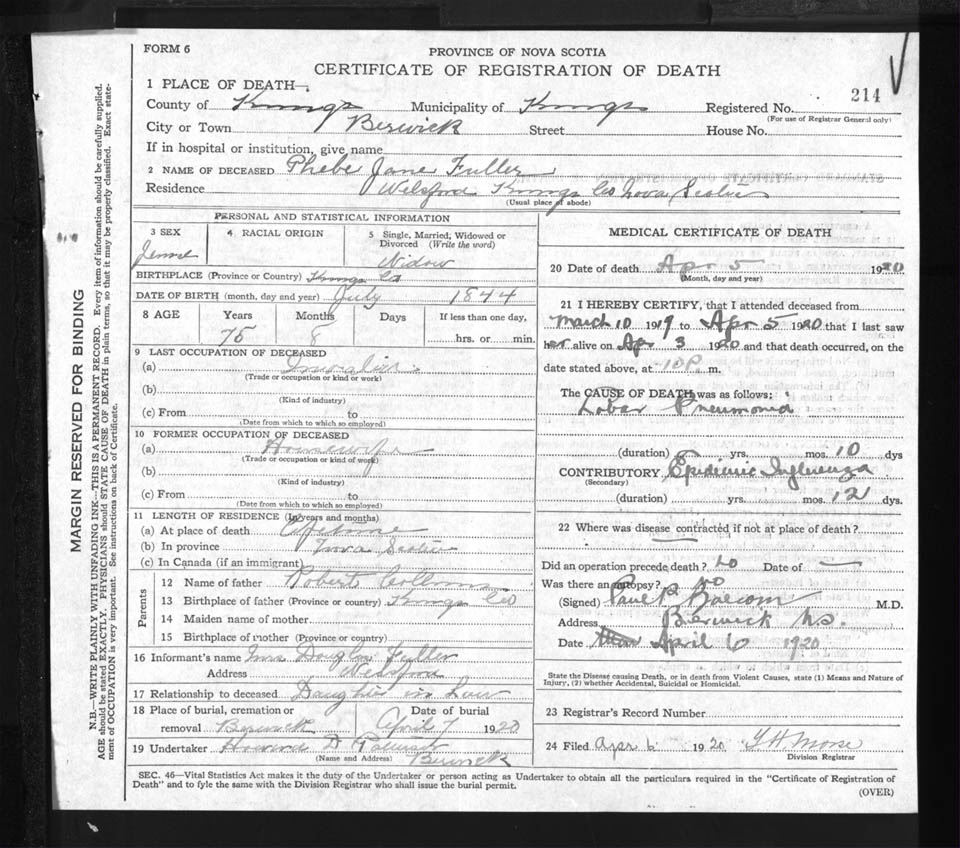 FORM 6
PROVINCE OF NOVA SCOTIA
CERTIFICATE OF REGISTRATION OF DEATH
1 PLACE OF DEATH—
County of Kings Municipality of Kings Registered No. 214
(For use of Registrar General only)
City or Town Berwick Street House No.
If in hospital or institution, give name
2 NAME OF DECEASED Phebe Jane Fuller
Residence Welsford Kings Co Nova Scotia
(Usual place of abode)
PERSONAL AND STATISTICAL INFORMATION
3 SEX 4 RACIAL ORIGIN 5 Single, Married, Widowed or Divorced (Write the word)
Widow
BIRTHPLACE (Province or Country) Kings Co
DATE OF BIRTH (month, day and year) July 1844
8 AGE Years Months Days If less than one day,
75 8 hrs. or min.
9 LAST OCCUPATION OF DECEASED
(a)
(Trade or occupation or kind or work)
(b)
(Kind of industry)
(c) From to
(Date from which to which so employed)
10 FORMER OCCUPATION OF DECEASED
(a) Housewife
(Trade or occupation or kind of work)
(b)
(Kind of industry)
(c) From to
(Date from which to which so employed)
11 LENGTH OF RESIDENCE (In years and months)
(a) At place of death Lifetime
(b) In province Nova Scotia
(c) In Canada (if an immigrant)
Parents
12 Name of father Robert Collins
13 Birthplace of father (Province or country) Kings Co
14 Maiden name of mother
15 Birthplace of mother (Province or country)
16 Informant's name Mrs Douglas Fuller
Address Welsford
17 Relationship to deceased Daughter in Law
18 Place of burial, cremation or removal Berwick Date of burial April 7 1920
19 Undertaker Howard D
(Name and Address) Berwick
MEDICAL CERTIFICATE OF DEATH
20 Date of death Apr 5 1920
(Month, day and year)
21 I HEREBY CERTIFY, that I attended deceased from
March 10 1919 to Apr 5 1920 that I last saw
her alive on Apr 3 1920 and that death occurred, on the
date stated above, at 10 P. m.
The CAUSE OF DEATH was as follows:
Lobar Pneumonia
(duration) yrs. mos. 10 dys
CONTRIBUTORY Epidemic Influenza
(Secondary)
(duration) yrs. mos. 12 dys.
22 Where was disease contracted if not at place of death?
Did an operation precede death? No Date of
Was there an autopsy? No
(Signed) M.D.
Address Berwick N.S.
Date April 6 1920
State the Disease causing Death, or in death from Violent Causes, state (1) Means and Nature of
Injury, (2) whether Accidental, Suicidal or Homicidal.
23 Registrar's Record Number
24 Filed Apr 6 1920 Morse
Division Registrar
SEC. 46—Vital Statistics Act makes it the duty of the Undertaker or person acting as Undertaker to obtain all the particulars required in the "Certificate of Registration of
Death" and to fyle the same with the Division Registrar who shall issue the burial permit.
(OVER)
MARGIN RESERVED FOR BINDING
N.B.—WRITE PLAINLY WITH UNFADING INK—THIS IS A PERMANENT RECORD. Every item of information should be carefully supplied.
AGE should be stated EXACTLY. PHYSICIANS should STATE CAUSE OF DEATH in plain terms, so that it may be properly classified. Exact state-
ment of OCCUPATION is very important. See instructions on back of Certificate.